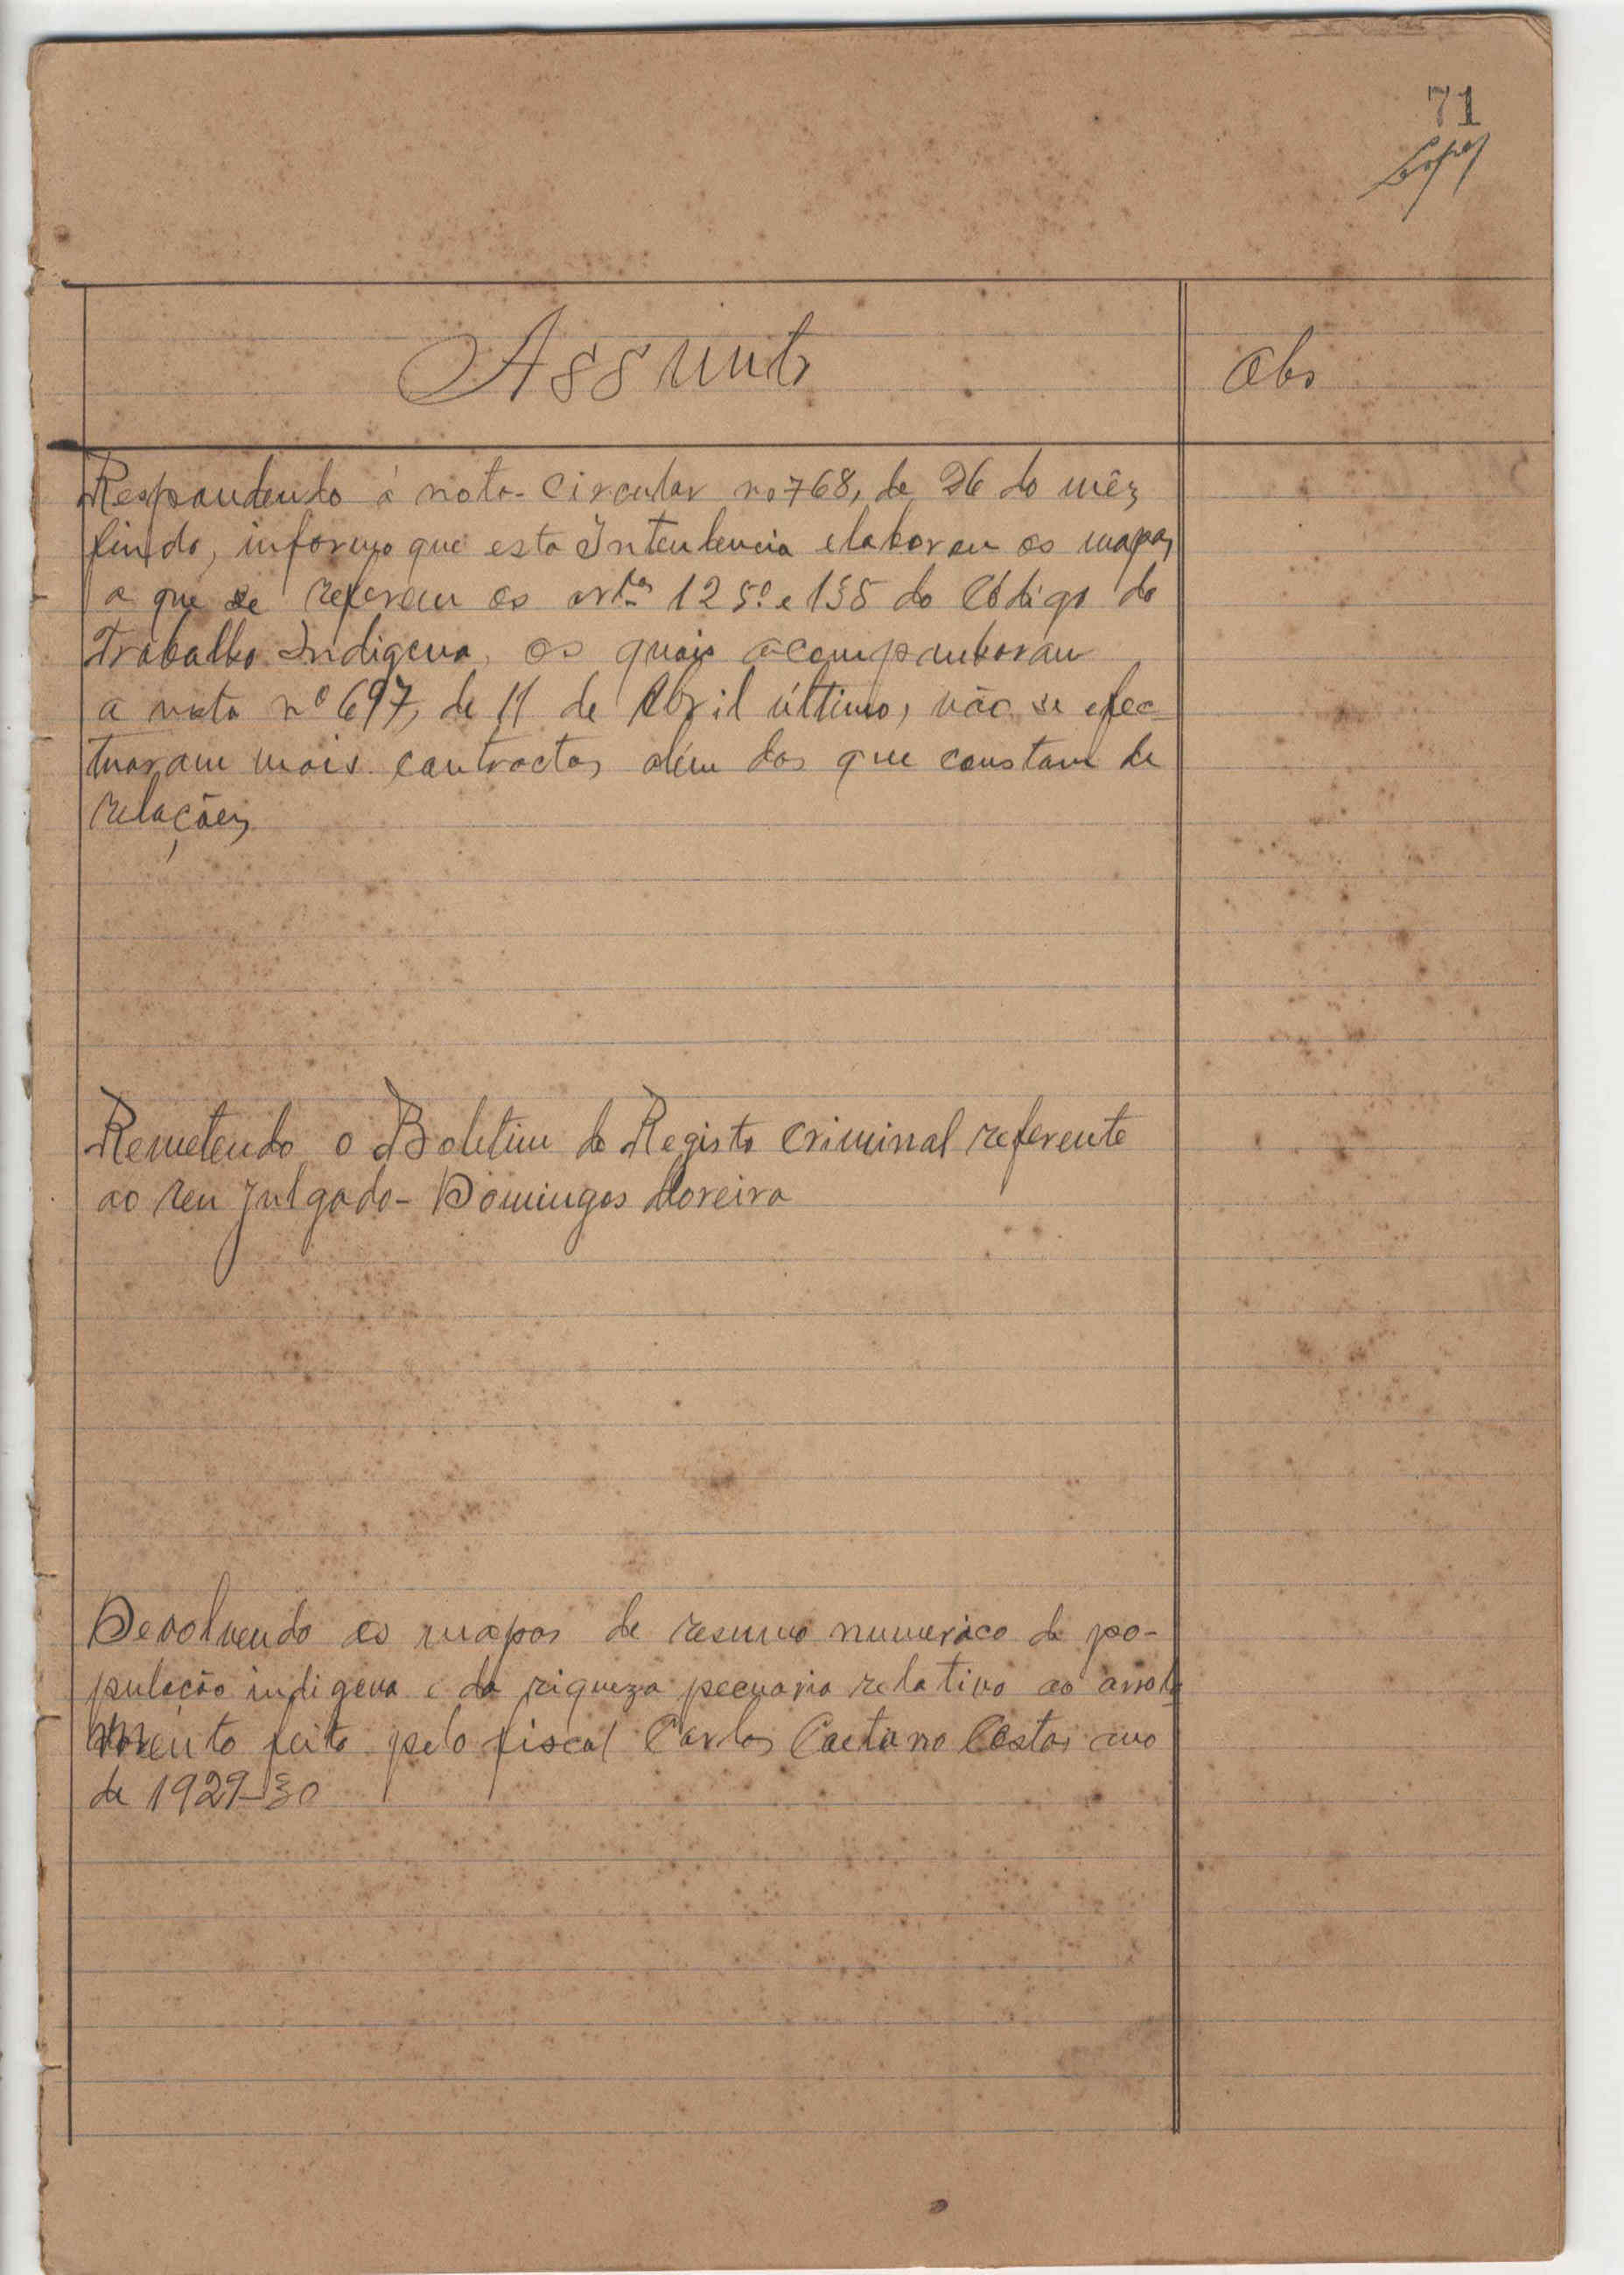 71
Lopes
Assunto
Obs
Respondendo á nota-circular nº 768, de 26 do mêz
findo, informo que esta Intendencia elaborou os mapas
a que se referem os artos 125º e 135 do Código do
Trabalho Indigena, os quais acompanharam
a nota nº 697, de 11 de Abril último, não se efec-
tuaram mais contractos além dos que constam de
relações
Remetendo o Boletim do Registo Criminal referente
ao reu julgado - Domingos Moreira
Devolvendo os mapas de resumo numerico da po-
pulação indigena e da riqueza pecuaria relativo ao arrola
mento feito pelo fiscal Carlos Caetano Costa, ano
de 1929-30